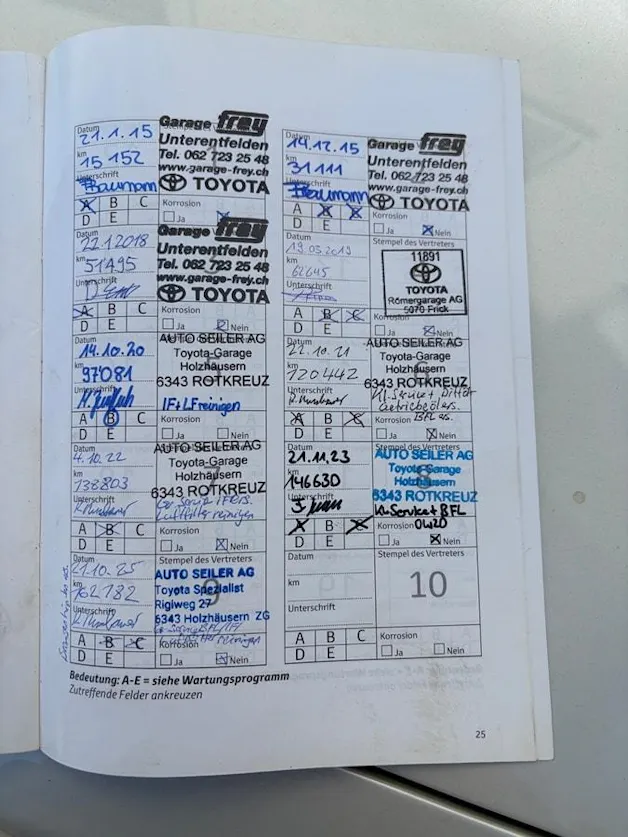 Datum
21.1.15
km
15 152
Unterschrift
Baumann
Garage frey
Unterentfelden
Tel. 062 723 25 48
www.garage-frey.ch
TOYOTA
A B C
D E
Korrosion
Ja
Datum
14.12.15
km
31 111
Unterschrift
Baumann
Garage frey
Unterentfelden
Tel. 062 723 25 48
www.garage-frey.ch
TOYOTA
A B C
D E
Korrosion
Ja Nein
Datum
22.1.2018
km
51495
Unterschrift
Garage frey
Unterentfelden
Tel. 062 723 25 48
www.garage-frey.ch
TOYOTA
A B C
D E
Korrosion
Ja Nein
Datum
19.03.2019
km
62645
Unterschrift
Stempel des Vertreters
11891
TOYOTA
Römergarage AG
5070 Frick
A B C
D E
Korrosion
Ja Nein
Datum
14.10.20
km
97081
Unterschrift
AUTO SEILER AG
Toyota-Garage
Holzhäusern
6343 ROTKREUZ
IF+LF reinigen
A B C
D E
Korrosion
Ja Nein
Datum
22.10.21
km
120442
Unterschrift
AUTO SEILER AG
Toyota-Garage
Holzhäusern
6343 ROTKREUZ
Kl. Service +
BFL es.
A B C
D E
Korrosion
Ja Nein
Datum
4.10.22
km
138803
Unterschrift
AUTO SEILER AG
Toyota-Garage
Holzhäusern
6343 ROTKREUZ
Luftfilter reinigen
A B C
D E
Korrosion
Ja Nein
Datum
21.11.23
km
146630
Unterschrift
AUTO SEILER AG
Toyota-Garage
Holzhäusern
6343 ROTKREUZ
Kl. Service + BFL
0W20
A B C
D E
Korrosion
Ja Nein
Datum
21.10.25
km
162782
Unterschrift
Stempel des Vertreters
9
AUTO SEILER AG
Toyota Spezialist
Rigiweg 27
6343 Holzhäusern ZG
reinigen
A B C
D E
Korrosion
Ja Nein
Datum
km
Unterschrift
Stempel des Vertreters
10
A B C
D E
Korrosion
Ja Nein
Bedeutung: A-E = siehe Wartungsprogramm
Zutreffende Felder ankreuzen
25